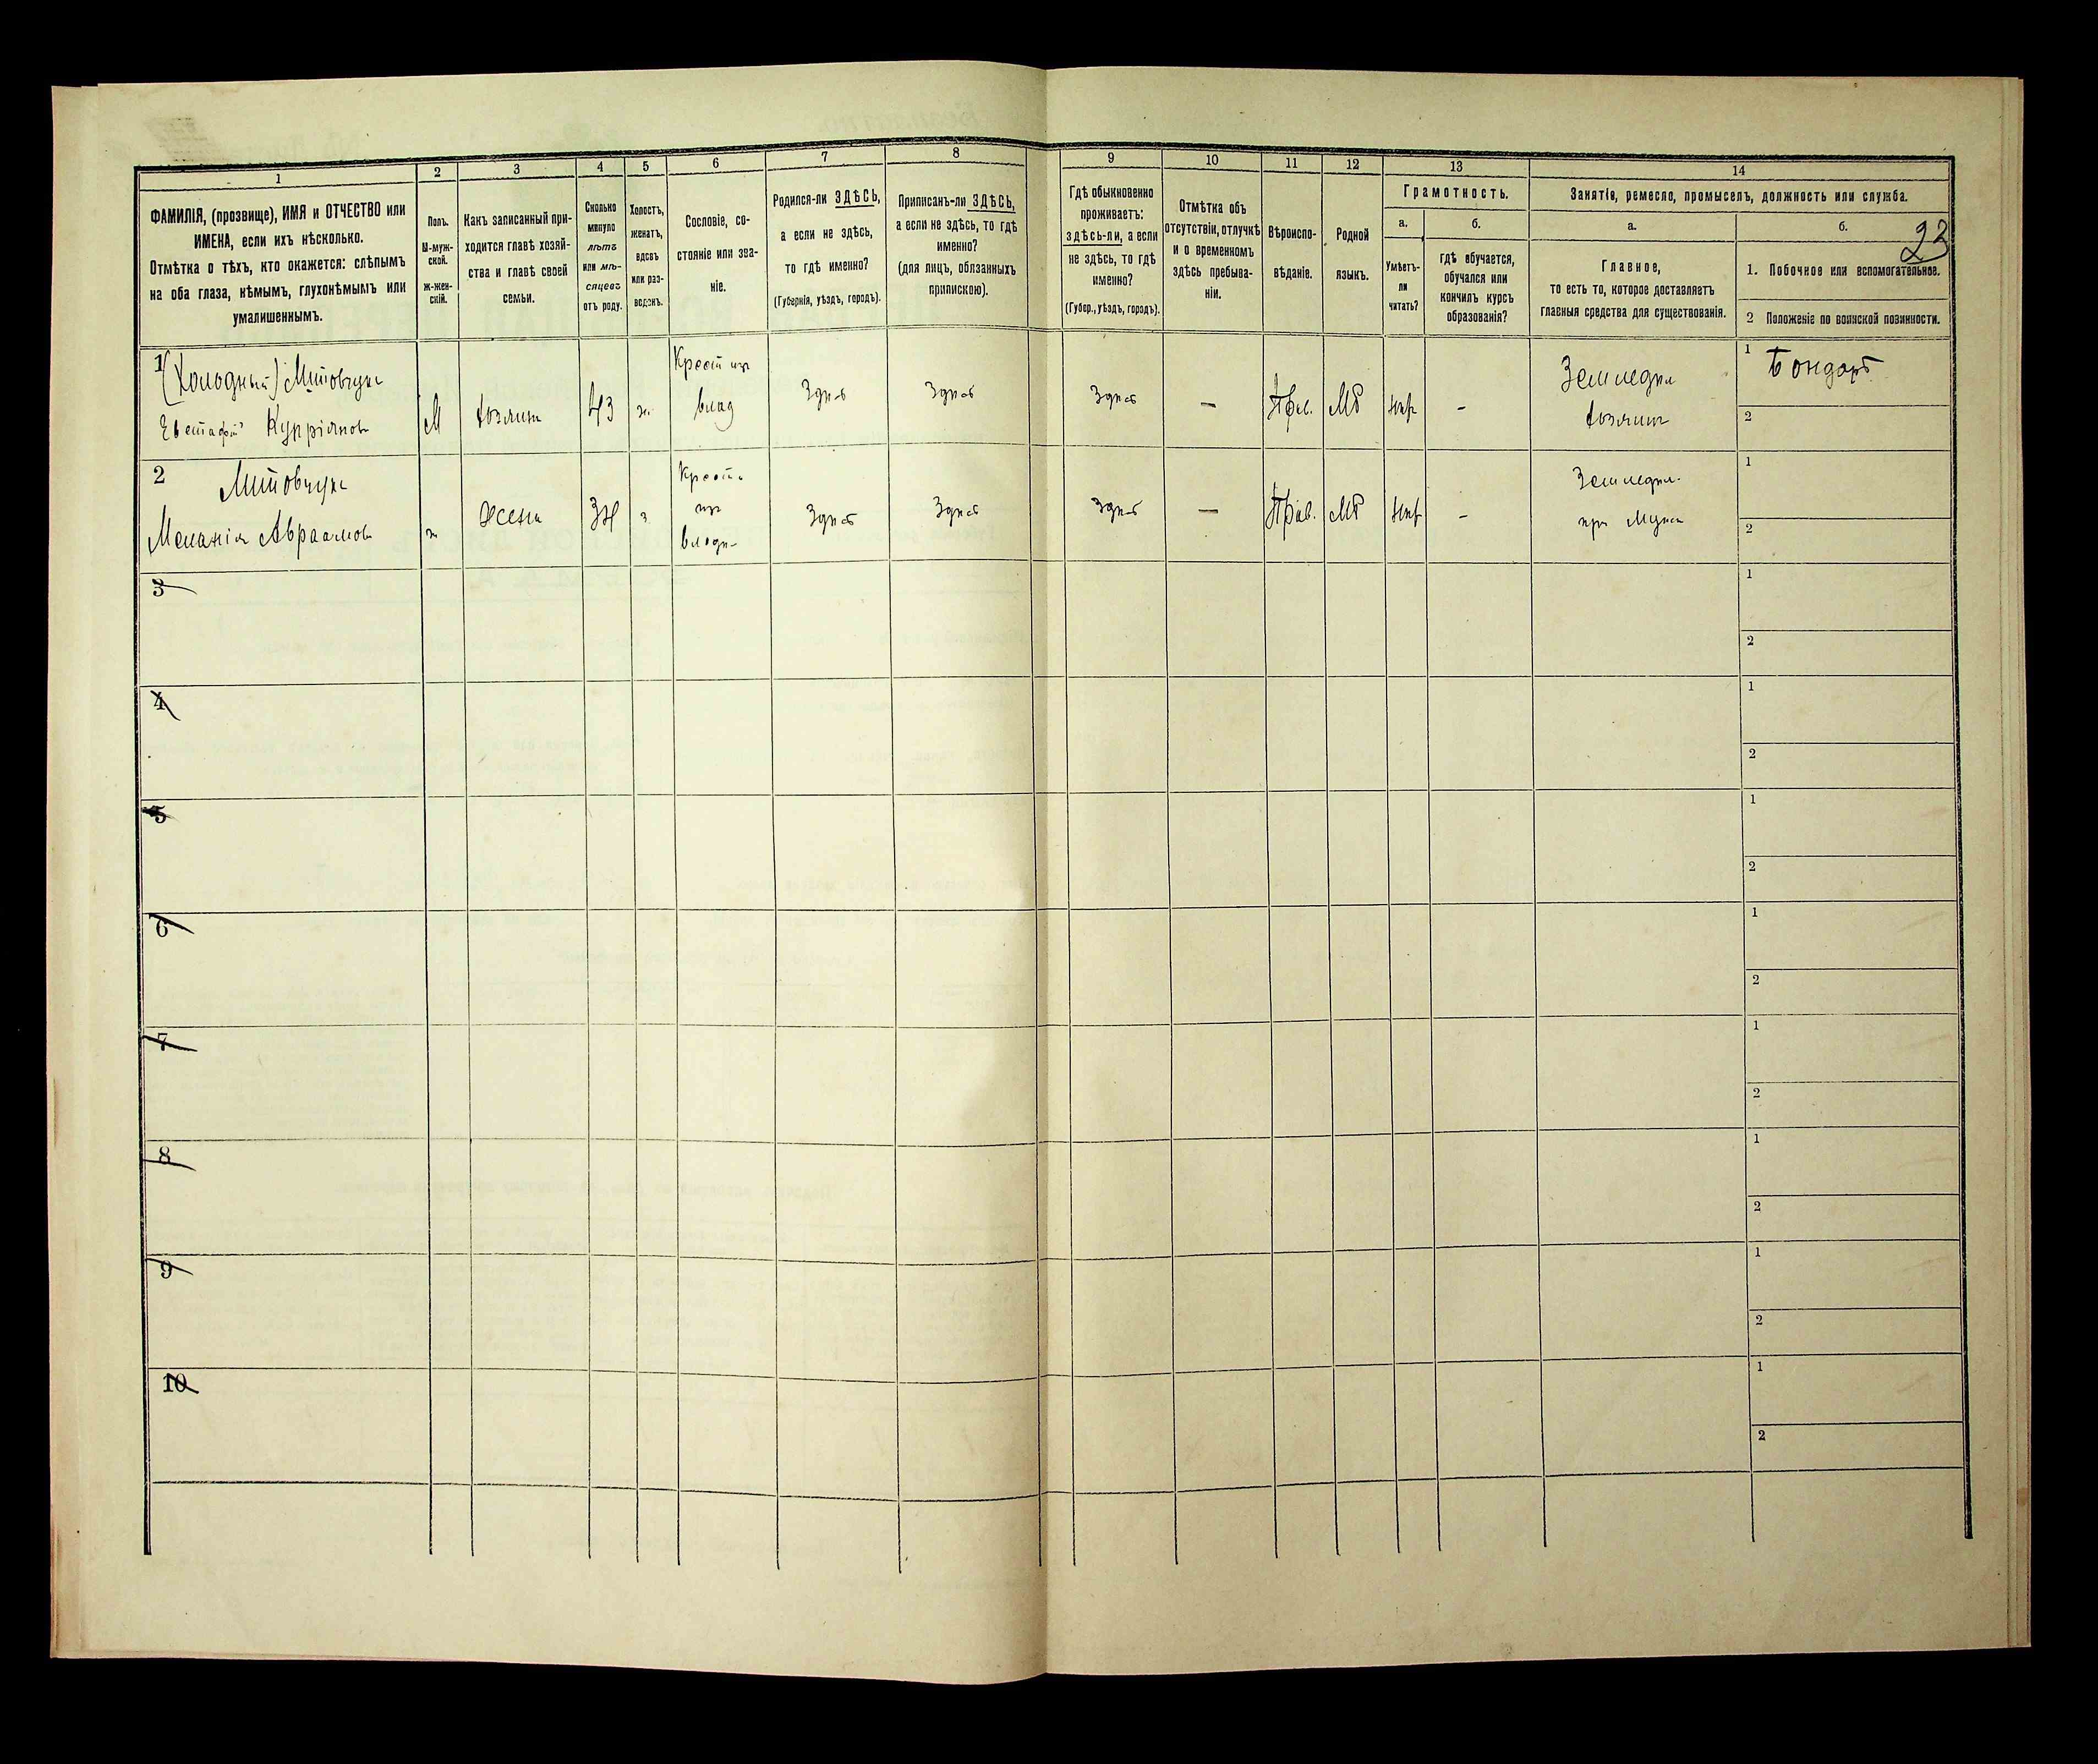 23
1 2 3 4 5 6 7 8 9 10 11 12 13 14
ФАМИЛІЯ, (прозвище), ИМЯ и ОТЧЕСТВО или
ИМЕНА, если ихъ нѣсколько.
Отмѣтка о тѣхъ, кто окажется: слѣпымъ
на оба глаза, нѣмымъ, глухонѣмымъ или
умалишеннымъ.
Полъ.
М-муж-
ской.
Ж-жен-
скій.
Какъ записанный при-
ходится главѣ хозяй-
ства и главѣ своей
семьи.
Сколько
минуло
лѣтъ
или мѣ-
сяцевъ
отъ роду.
Холостъ,
женатъ,
вдовъ
или раз-
веденъ.
Сословіе, со-
стояніе или зва-
ніе.
Родился-ли ЗДѢСЬ,
а если не здѣсь,
то гдѣ именно?
(Губернія, уѣздъ, городъ).
Приписанъ-ли ЗДѢСЬ,
а если не здѣсь, то гдѣ
именно?
(для лицъ, обязанныхъ
припискою).
Гдѣ обыкновенно
проживаетъ:
здѣсь-ли, а если
не здѣсь, то гдѣ
именно?
(Губер., уѣздъ, городъ).
Отмѣтка объ
отсутствіи, отлучкѣ
и о временномъ
здѣсь пребыва-
ніи.
Вѣроиспо-
вѣданіе.
Родной
языкъ.
Грамотность.
а.
Умѣетъ-
ли
читать?
б.
гдѣ обучается,
обучался или
кончилъ курсъ
образованія?
Занятіе, ремесло, промыселъ, должность или служба.
а.
Главное,
то есть то, которое доставляетъ
главныя средства для существованія.
б.
1. Побочное или вспомогательное.
2 Положеніе по воинской повинности.
1
(Холодный)
Евстафій Купріянов
М
43
Крест из
влад
—
Прав.
–
Земледел
1 Бондарь
2
2
Меланія Авраамов
Жена
Крест.
из
—
Прав.
–
Земледел.
при муже
1
2
3
1
2
4
1
2
5
1
2
6
1
2
7
1
2
8
1
2
9
1
2
10
1
2